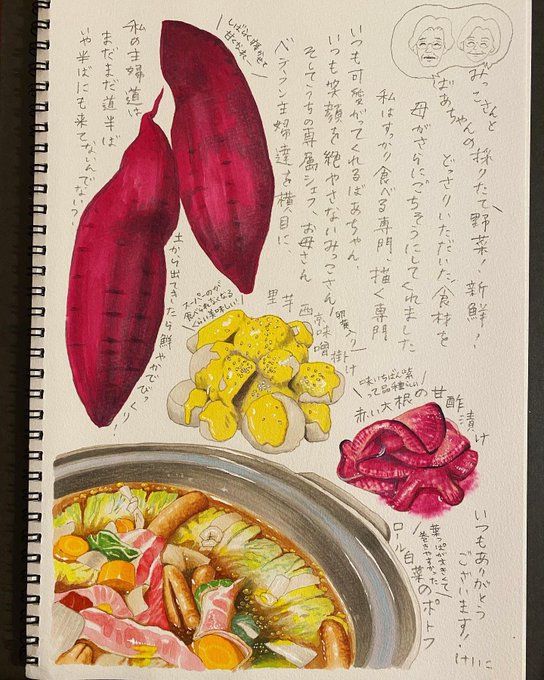 みっこさんと
ばあちゃんの
採りたて野菜！新鮮！
どっさりいただいた食材を
母がさらにごちそうにしてくれました
私はすっかり食べる専門、描く専門
いつも可愛がってくれるばあちゃん、
いつも笑顔を絶やさないみっこさん、
そしてうちの専属シェフ、お母さん
ベテラン主婦達を横目に
しばらく寝かせて
甘くなあれ
私の主婦道は
まだまだ道半ば
いや半ばにも来てないんでない？
土から出てきたら鮮やかでびっくり！
卵黄入り
里芋 西京味噌掛け
スーパーのが
食べられなくなる
くらい美味しい！
味いちばん紫
って品種らしい
赤い大根の甘酢漬け
葉っぱが大きくて
巻きやすかった
ロール白菜のポトフ
いつもありがとう
ございます！
けいこ